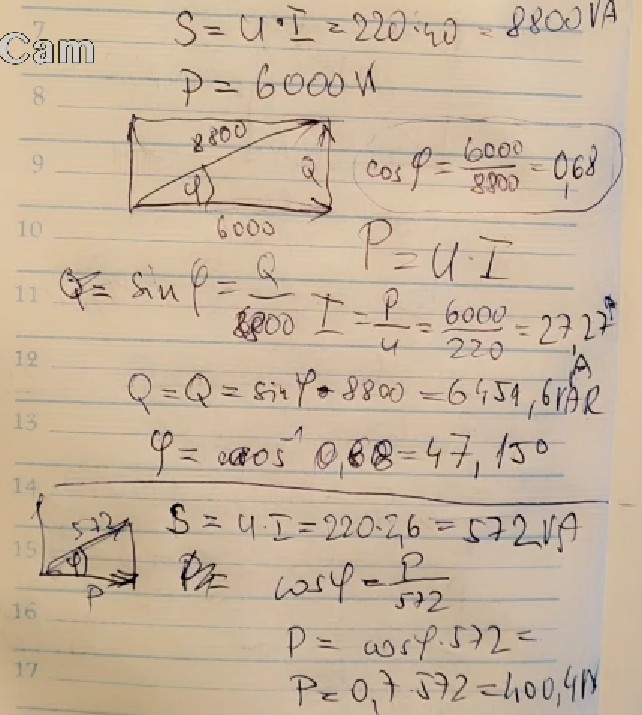 7
Cam
S = U·I = 220·40 = 8800 VA
P = 6000 W
8
8800
Q
φ
6000
9
cos φ = 6000/8800 = 0,68
10
P = U·I
11
sin φ = Q/8800
I = P/U = 6000/220 = 27,27 A
12
Q = Q = sin φ · 8800 = 6451,6 VAR
13
φ = cos⁻¹ 0,68 = 47,15°
14
572
φ
P
S = U·I = 220·2,6 = 572 VA
15
cos φ = P/572
16
P = cos φ · 572 =
17
P = 0,7·572 = 400,4 W